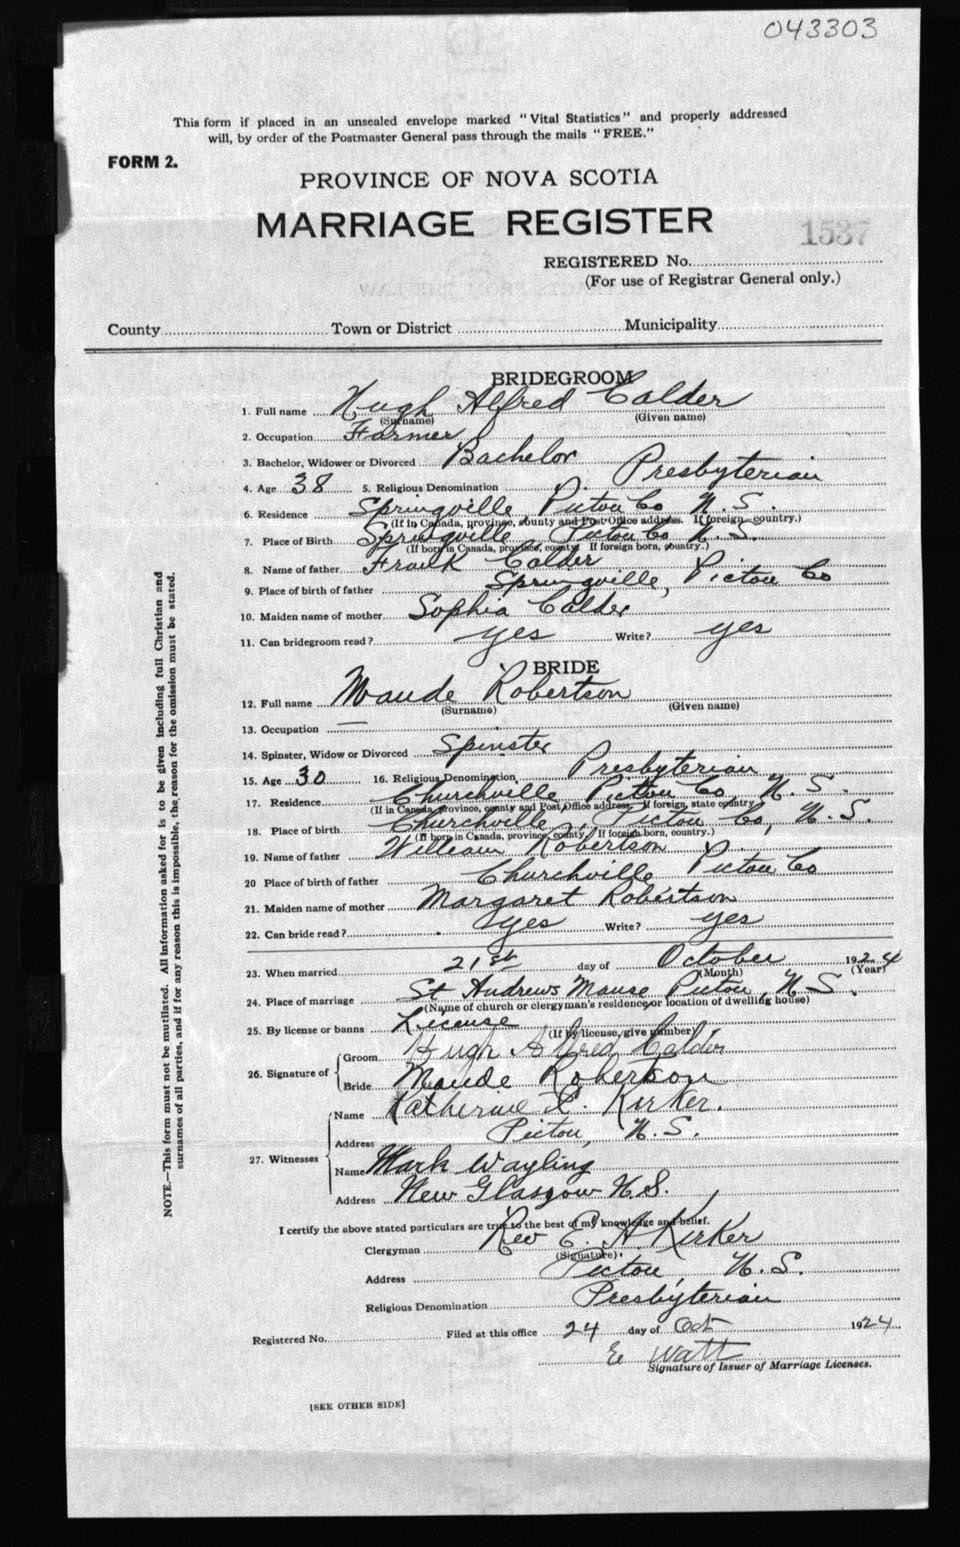 043303
This form if placed in an unsealed envelope marked "Vital Statistics" and properly addressed
will, by order of the Postmaster General pass through the mails "FREE."
FORM 2.
PROVINCE OF NOVA SCOTIA
MARRIAGE REGISTER
1537
REGISTERED No.
(For use of Registrar General only.)
County Town or District Municipality
BRIDEGROOM
1. Full name Hugh Alfred Calder
(Surname) (Given name)
2. Occupation Farmer
3. Bachelor, Widower or Divorced Bachelor
4. Age 38 5. Religious Denomination Presbyterian
6. Residence Springville Pictou Co N.S.
(If in Canada, province, county and Post Office address. If foreign country.)
7. Place of Birth Springville Pictou Co N.S.
(If born in Canada, province, county. If foreign born, country.)
8. Name of father Frank Calder
9. Place of birth of father Springville, Pictou Co
10. Maiden name of mother Sophia Calder
11. Can bridegroom read? yes Write? yes
BRIDE
12. Full name Maude Robertson
(Surname) (Given name)
13. Occupation —
14. Spinster, Widow or Divorced Spinster
15. Age 30 16. Religious Denomination Presbyterian
17. Residence Churchville Pictou Co, N.S.
(If in Canada, province, county and Post Office address. If foreign, state country
18. Place of birth Churchville, Pictou Co, N.S.
(If born in Canada, province, county. If foreign born, country.)
19. Name of father William Robertson
20 Place of birth of father Churchville Pictou Co
21. Maiden name of mother Margaret Robertson
22. Can bride read? yes Write? yes
23. When married 21st day of October 1924
(Month) (Year)
24. Place of marriage St Andrews Manse Pictou, N.S.
(Name of church or clergyman's residence or location of dwelling house)
25. By license or banns License
(If by license, give number)
26. Signature of Groom Hugh Alfred Calder
Bride Maude Robertson
27. Witnesses Name Katherine E. Kirker.
Address Pictou, N.S.
Name Mark Wayling
Address New Glasgow N.S.
I certify the above stated particulars are true to the best of my knowledge and belief.
Clergyman Rev E. A. Kirker
(Signature).
Address Pictou, N.S.
Religious Denomination Presbyterian
Registered No. Filed at this office 24 day of Oct 1924
E Watt
Signature of Issuer of Marriage Licenses.
[SEE OTHER SIDE]
NOTE.—This form must not be mutilated. All information asked for is to be given including full Christian and
surnames of all parties, and if for any reason this is impossible, the reason for the omission must be stated.